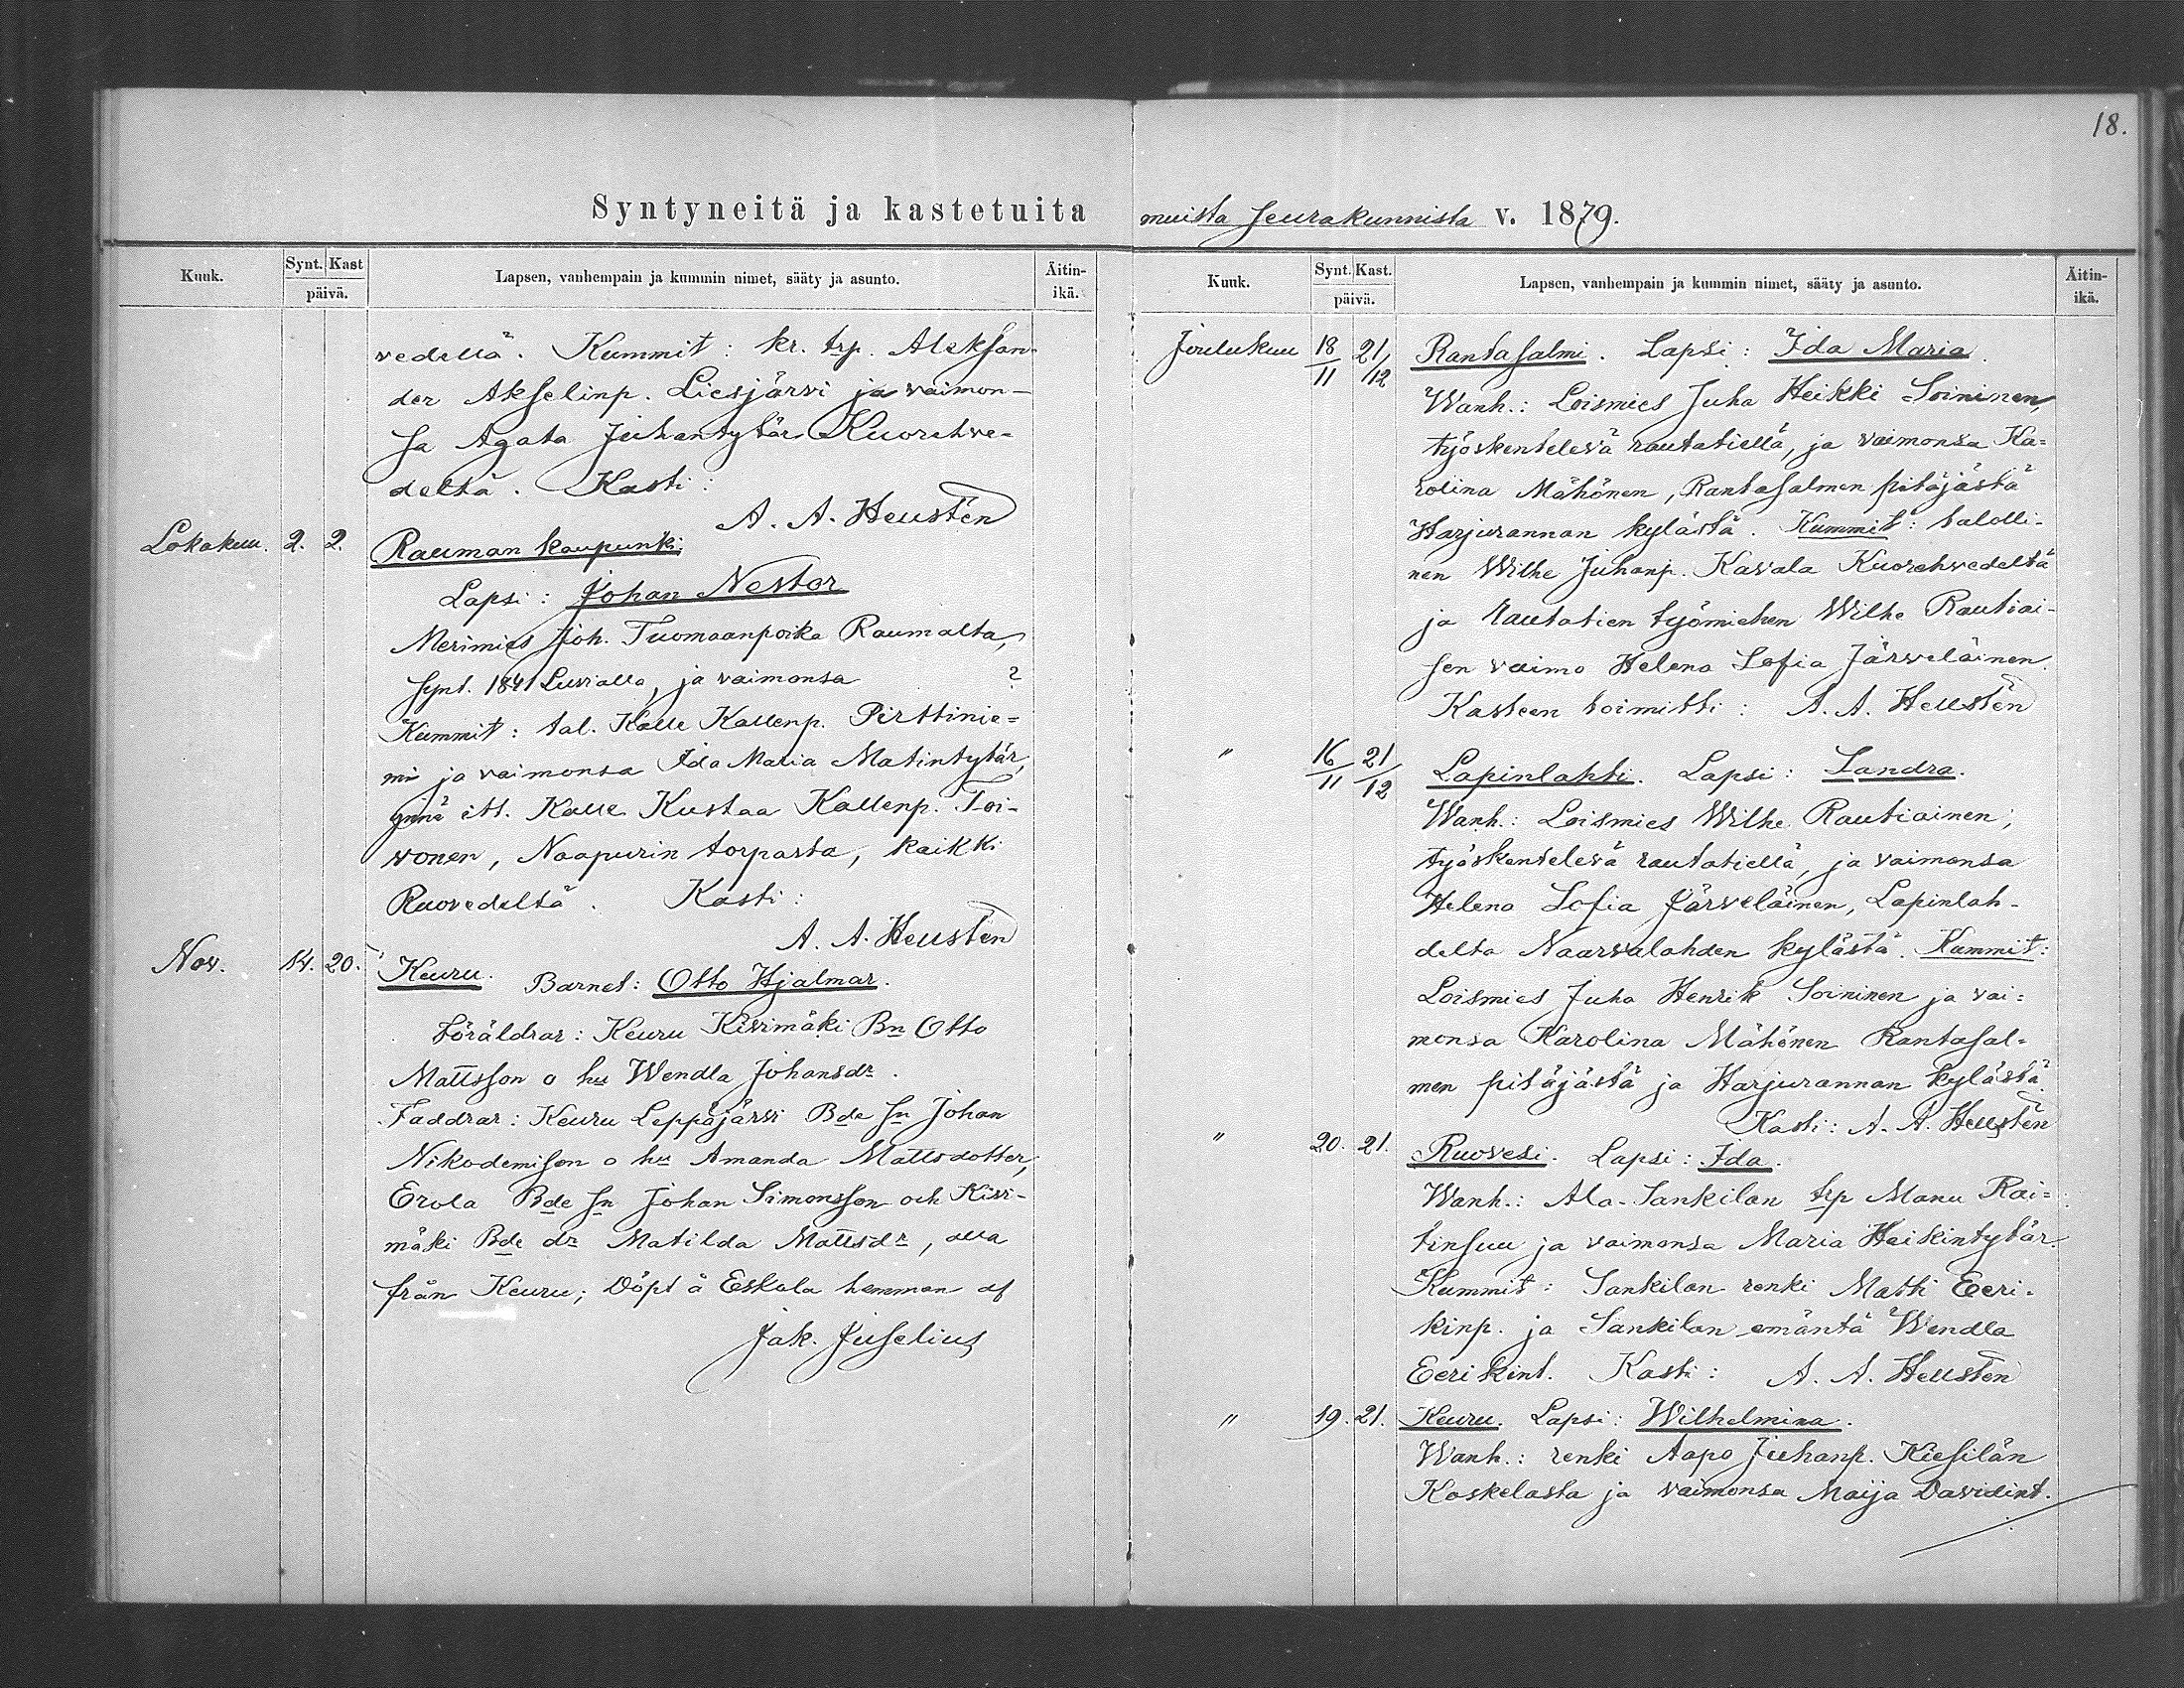 18.
Syntyneitä ja kastetuita muista seurakunnista v. 1879.
Kuuk. Synt. Kast päivä. Lapsen, vanhempain ja kummin nimet, sääty ja asunto. Äitin-ikä.
vedellä. Kummit: kr. trp. Aleksan-
der Akselinp. Liesjärvi ja vaimon-
sa Agata Juhantytär Kuorehve-
deltä. Kasti:
A. A. Heustén
Lokakuu. 2. 2. Rauman kaupunki.
Lapsi: Johan Nestor
Merimies Joh. Tuomaanpoika Raumalta,
synt. 1841 Luvialla, ja vaimonsa ?
Kummit: tal. Kalle Kallenp. Pirttinie-
mi ja vaimonsa Ida Maria Matintytär,
ynnä itl. Kalle Kustaa Kallenp. Toi-
vonen, Naapurin torpasta, kaikki
Ruovedeltä. Kasti:
A. A. Heustén
Nov. 14. 20. Keuru. Barnet: Otto Hjalmar.
Föräldrar: Keuru Kivimäki Bn Otto
Mattsson o hu Wendla Johansdr.
Faddrar: Keuru Leppäjärvi Bde sn Johan
Nikodemison o hu Amanda Mattsdotter,
Erola Bde sn Johan Simonsson och Kivi-
mäki Bde dr Matilda Mattsdr, alla
från Keuru; Döpt å Eskola hemman af
Jak. Juselius
Kuuk. Synt. Kast. päivä. Lapsen, vanhempain ja kummin nimet, sääty ja asunto. Äitin-ikä.
Joulukuu 18/11 21/12 Rantasalmi. Lapsi: Ida Maria.
Wanh.: Loismies Juha Heikki Soininen,
työskentelevä rautatiellä, ja vaimonsa Ka-
rolina Mähönen, Rantasalmen pitäjästä
Harjurannan kylästä. Kummit: talolli-
nen Wilhe Juhanp. Kavala Kuorehvedeltä
ja rautatien työmiehen Wilhe Rautiai-
sen vaimo Helena Sofia Järveläinen.
Kasteen toimitti: A. A. Heustén
" 16/11 21/12 Lapinlahti. Lapsi: Sandra.
Wanh.: Loismies Wilhe Rautiainen,
työskentelevä rautatiellä, ja vaimonsa
Helena Sofia Järveläinen, Lapinlah-
delta Naarvalahden kylästä. Kummit:
Loismies Juha Henrik Soininen ja vai-
monsa Karolina Mähönen Rantasal-
men pitäjästä ja Harjurannan kylästä.
Kasti: A. A. Heustén
" 20. 21. Ruovesi. Lapsi: Ida.
Wanh.: Ala-Sankilan trp Manu Rai-
tinsuu ja vaimonsa Maria Heikintytär.
Kummit: Sankilan renki Matti Eeri-
kinp. ja Sankilan emäntä Wendla
Eerikint. Kasti: A. A. Heustén
" 19. 21. Keuru. Lapsi: Wilhelmina.
Wanh.: renki Aapo Juhanp. Kiesilän
Koskelasta ja vaimonsa Maija Davidint.